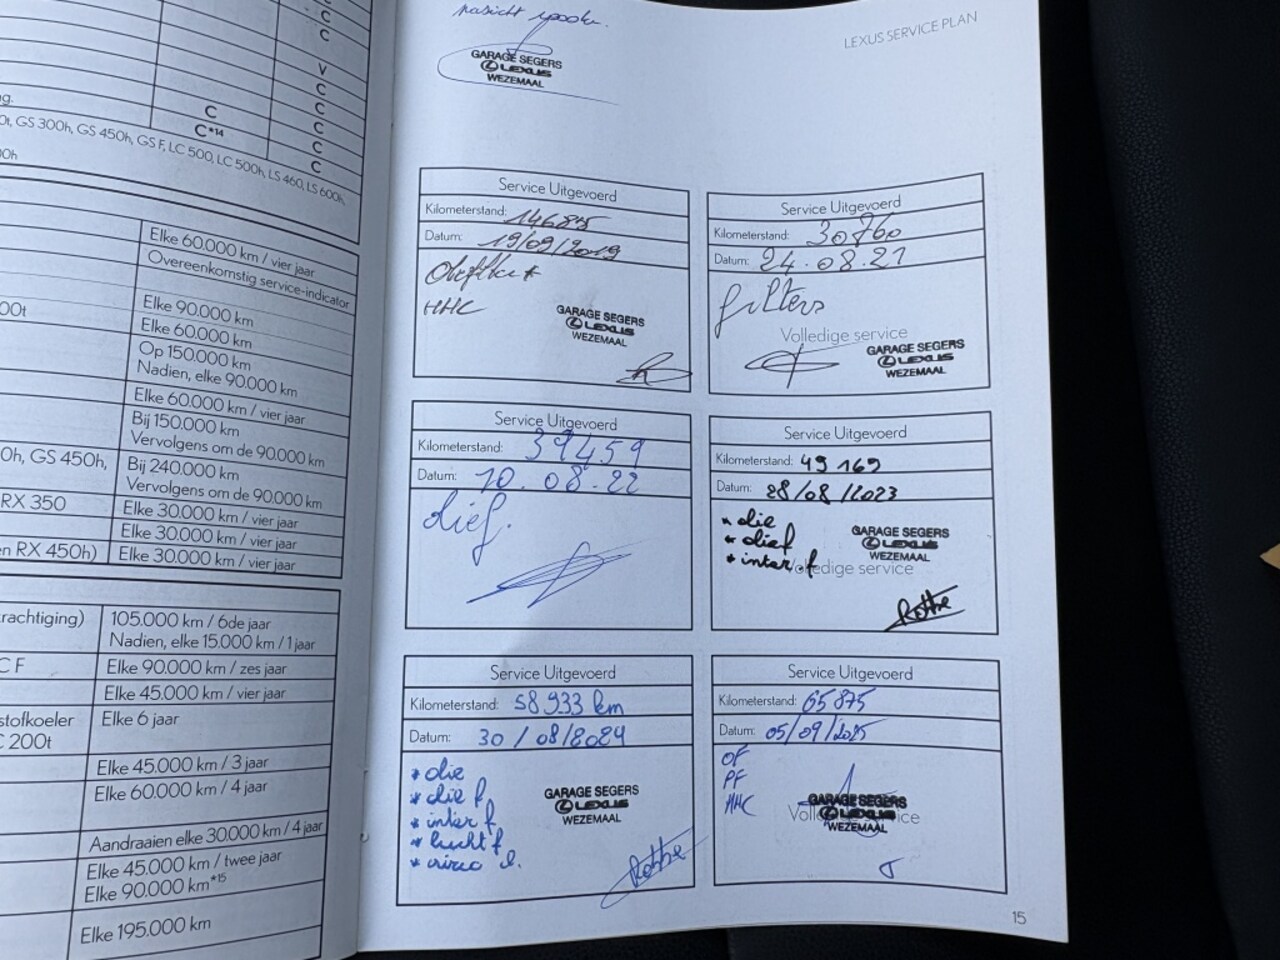 C
C
V
C
C
C
C
C
C*14
C
g.
0t, GS 300h, GS 450h, GS F, LC 500, LC 500h, LS 460, LS 600h,
00h
Elke 60.000 km / vier jaar
Overeenkomstig service-indicator
Elke 90.000 km
00t
Elke 60.000 km
Op 150.000 km
Nadien, elke 90.000 km
Elke 60.000 km / vier jaar
Bij 150.000 km
Vervolgens om de 90.000 km
0h, GS 450h,
Bij 240.000 km
Vervolgens om de 90.000 km
RX 350
Elke 30.000 km / vier jaar
Elke 30.000 km / vier jaar
en RX 450h)
Elke 30.000 km / vier jaar
rachtiging)
105.000 km / 6de jaar
Nadien, elke 15.000 km / 1 jaar
C F
Elke 90.000 km / zes jaar
Elke 45.000 km / vier jaar
stofkoeler
C 200t
Elke 6 jaar
Elke 45.000 km / 3 jaar
Elke 60.000 km / 4 jaar
Aandraaien elke 30.000 km / 4 jaar
Elke 45.000 km / twee jaar
Elke 90.000 km*15
Elke 195.000 km
LEXUS SERVICE PLAN
GARAGE SEGERS
LEXUS
WEZEMAAL
Service Uitgevoerd
Kilometerstand: 14685
Datum: 19/09/2019
HHC
GARAGE SEGERS
LEXUS
WEZEMAAL
Service Uitgevoerd
Kilometerstand: 30760
Datum: 24.08.21
filters
Volledige service
GARAGE SEGERS
LEXUS
WEZEMAAL
Service Uitgevoerd
Kilometerstand: 39459
Datum: 10.08.22
dief.
Service Uitgevoerd
Kilometerstand: 49 169
Datum: 28/08/2023
* olie
* olief
* inter f
Volledige service
GARAGE SEGERS
LEXUS
WEZEMAAL
Service Uitgevoerd
Kilometerstand: 58 933 km
Datum: 30/08/2024
* olie
* olie f
* inter f
* lucht f
GARAGE SEGERS
LEXUS
WEZEMAAL
Service Uitgevoerd
Kilometerstand: 65875
Datum: 05/09/2025
OF
PF
HHC
Volledige service
GARAGE SEGERS
LEXUS
WEZEMAAL
15